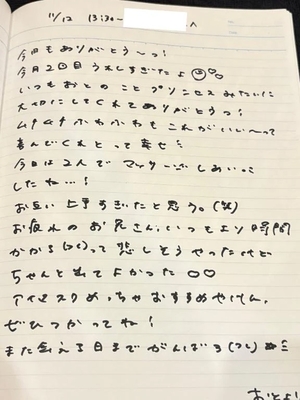 11/12 13:30~ へ
今日もありがとう〜っ!
今月2回目うれしすぎたよ
いつもおとのことプリンセスみたいに
大切にしてくれてありがとうっ!
ムチムチふわふわも これがいい〜って
喜んでくれとって幸せ
今日は2人でマッサージしあいっこ
したね…!
お互い上手すぎたと思う。(笑)
お疲れのお兄さん、いつもより時間
かかるって悲しそうやったけど
ちゃんと出てよかった
アイマスクめっちゃおすすめやけん、
ぜひつかってね!
また会える日までがんばろ
おとより